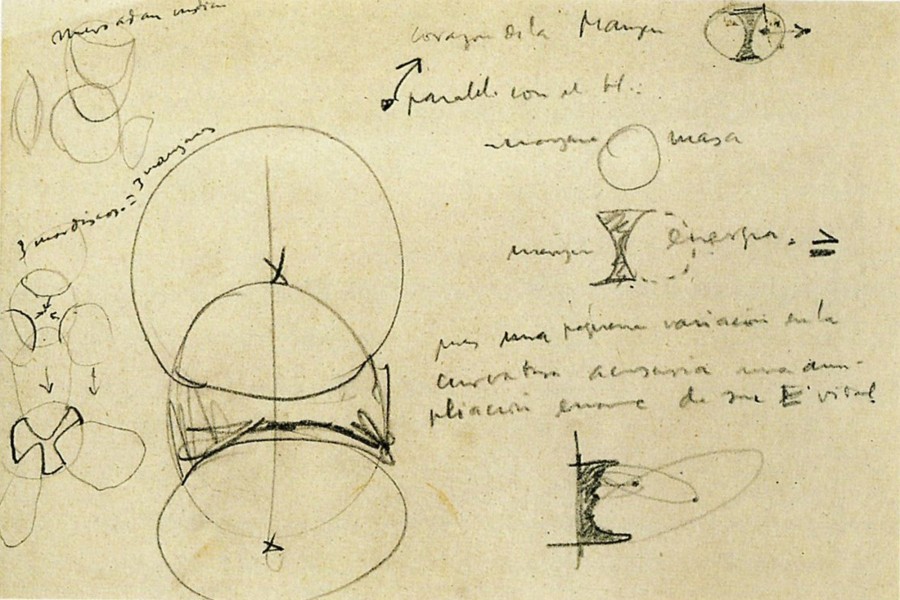 3 mordiscos = 3 manzanas
corazon de la Manzana
paralel con el H.
manzana masa
energia.
pues una pequeña variacion en la
curvatura acusaria una am-
pliacion enorme de su E vital